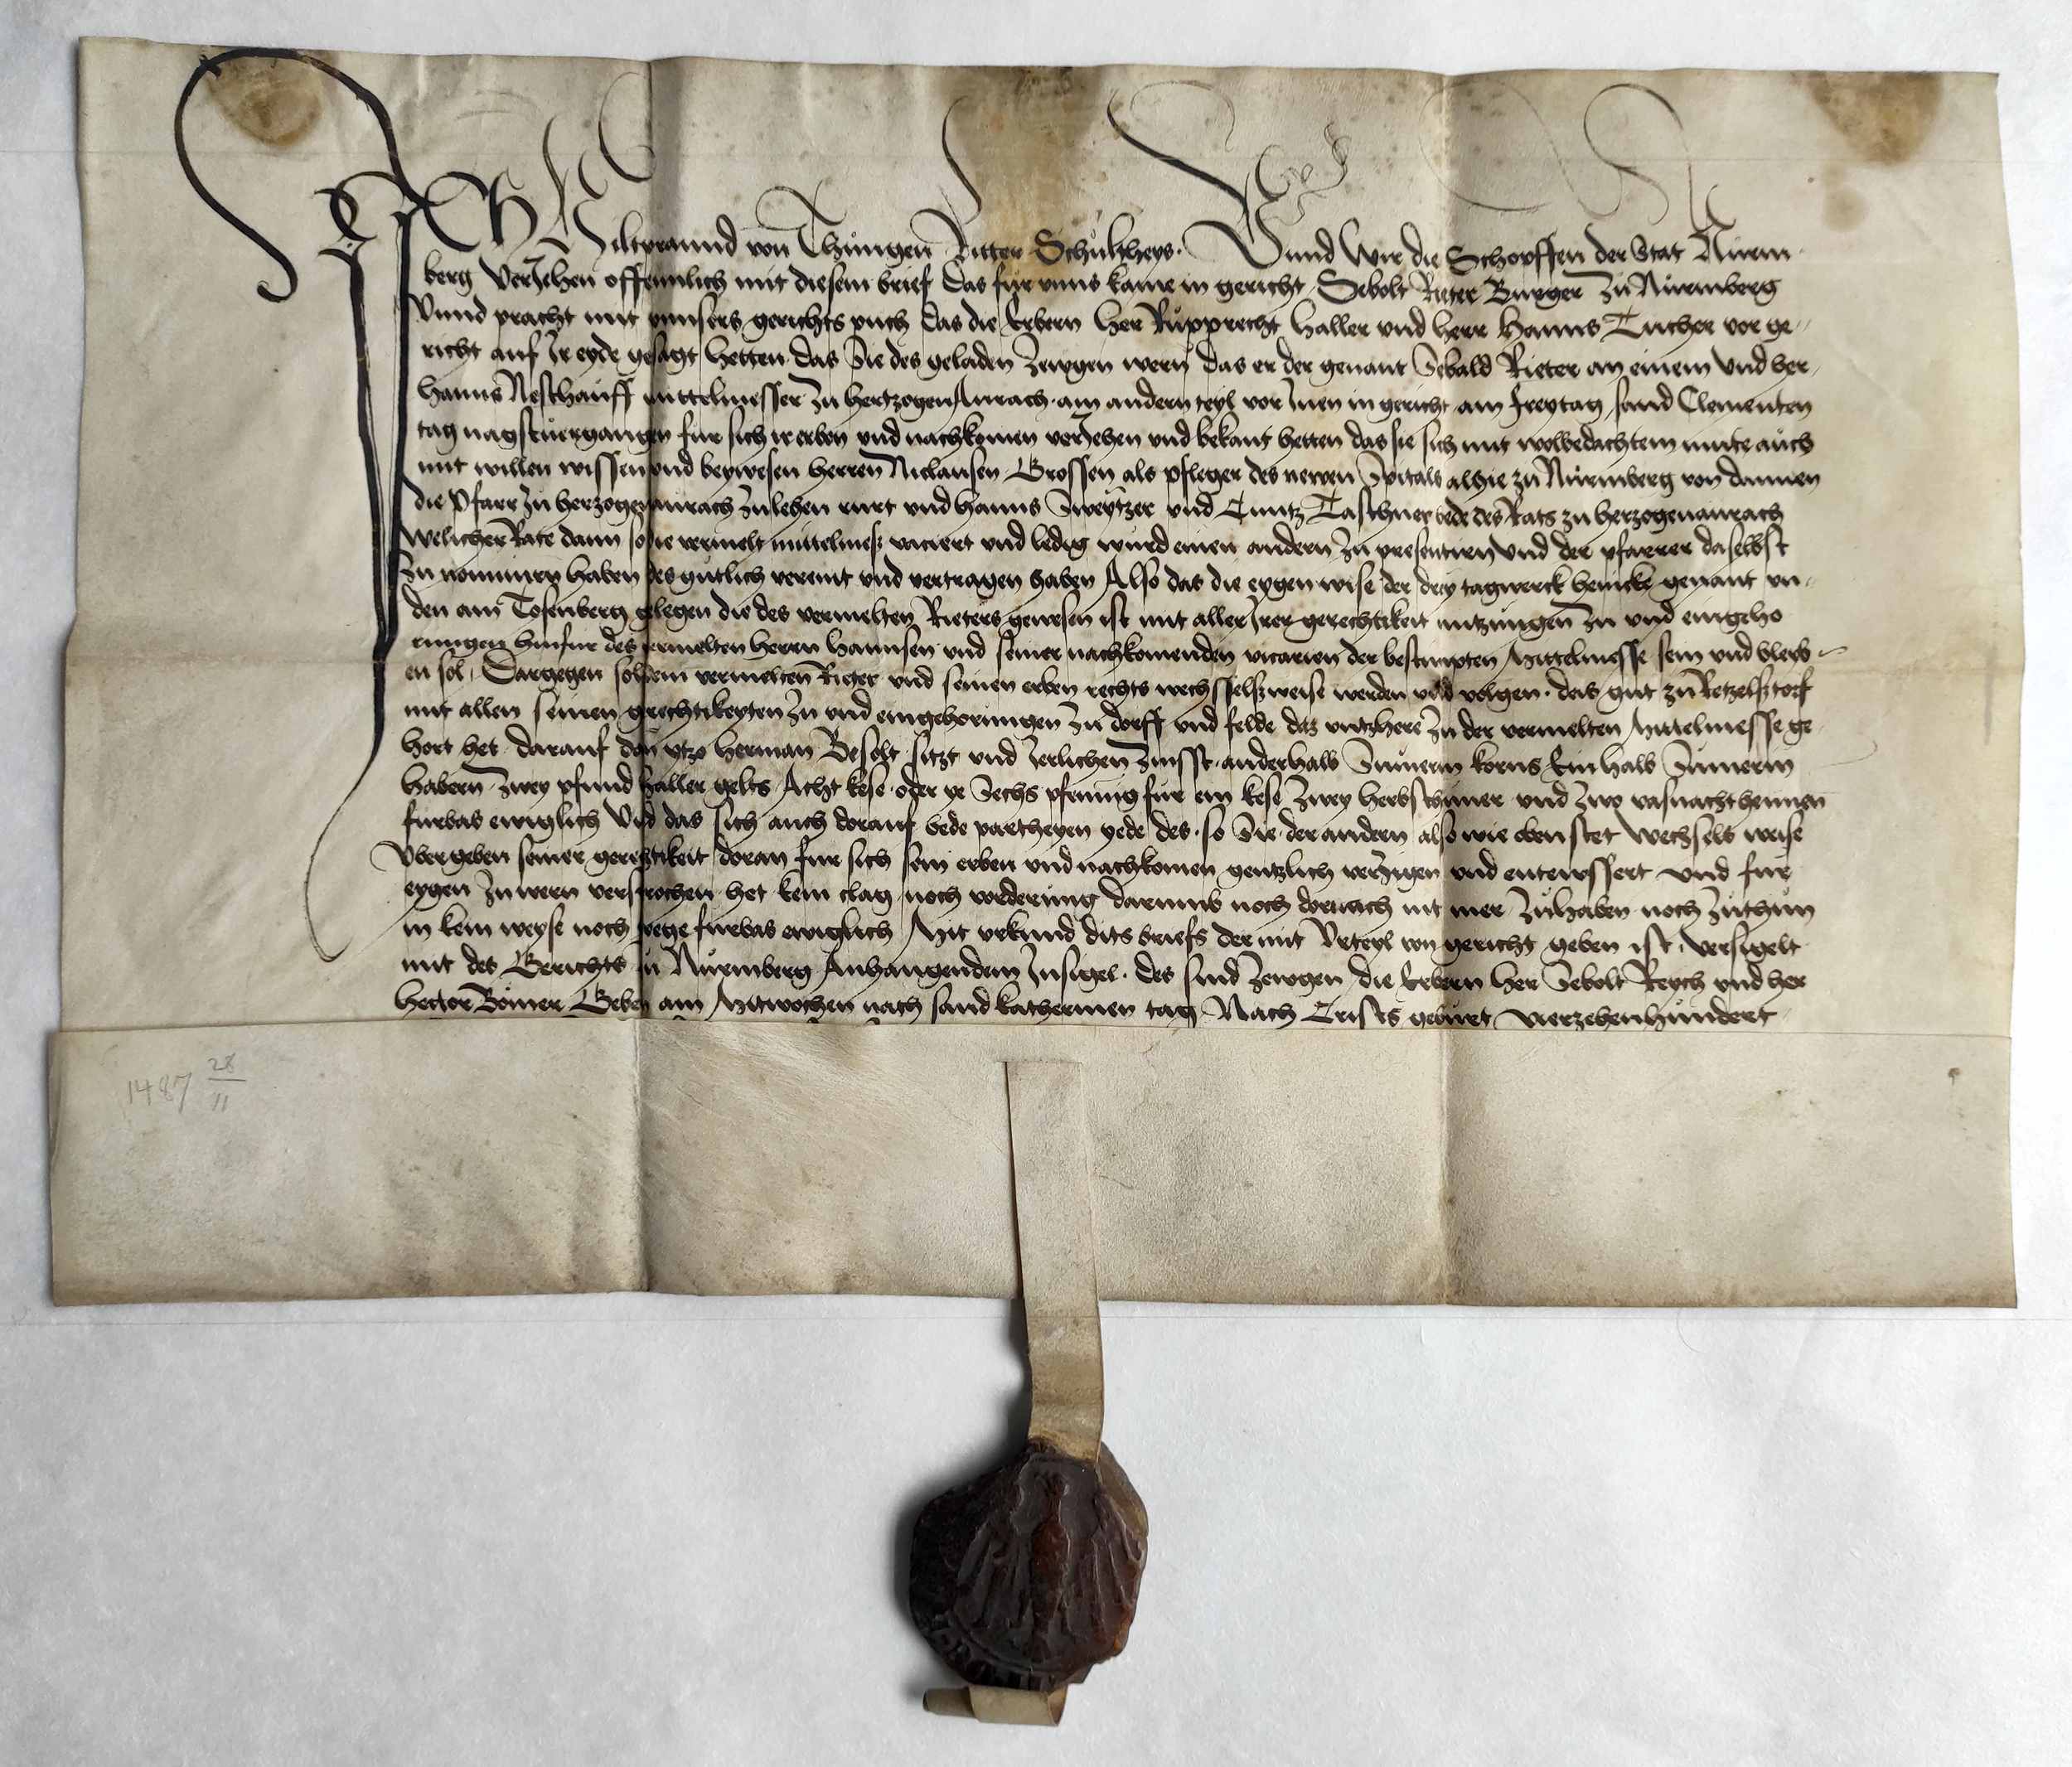 ICH Hiltprannd von Thüngen Ritter Schültheys. Vnnd Wir die Schopffen der Stat Nürm-
berg Veriehen offennlich mit diesem brief Das für vnns kame in gericht Sebolt Rieter Burger zu Nüremberg
Vnnd pracht mit vnnsers gerichts puch das die Erbern Her Rüpprecht Haller vnd herr Hanns Tucher vor ge-
richt auf Ir eyde gesagt hetten das Sie des geladen zewgen wern das er der genant Sebald Rieter an einem Vnd her
Hanns mittelmesser zu HertzogenAurach am andern teyl vor Inen in gericht am freytag sand Clementen
tag nagstuergangen für sich ir erben vnd nachkomen veriehen vnd bekant hetten das sie sich mit wolbedachtem mute auch
mit willen wissen vnd beywesen herren Niclausen Grossen als pfleger des newen Spitals alhie zu Nüremberg von dannen
die Pfarr zu herzogenaurach zulehen rurt vnd Hanns Sweytzer vnd Cuntz Taschner bede des Rats zu herzogenaurach
welicher Rate dann so die vermelt mittelmeß vaciert vnd ledig würd einen andern zu presentirn Vnd der pfarrer daselbst
zu nominirn haben des gütlich vereint vnd vertragen haben Also das die eygen wise der drey tagwerck heincke genant vn-
den am Tosenberg gelegen die des vermelten Rieters gewesen ist mit aller Irer gerechtikeit nutzungen zu vnd eingeho
rungen hinfur des vermelten herrn Hannsen vnd seiner nachkomenden vicarien der bestimpten Mittelmesse sein vnd bleyb-
en sol. Dargegen sol dem vermelten Rieter vnd seinen erben rechts wechsselßweise werden vnd volgen. das gut zu Retzelßtorf
mit allen seinen gerechtikeyten zu vnd eingehorungen zu dorff vnd felde das vntzhere zu der vermelten Mittelmesse ge
hort het darauf dan ytzo Herman Besolt sitzt vnd Jerlichen zinsst. anderhalb Sümerin korns Ein halb Sümerin
habern zwey pfund haller gelts Acht kese. oder ye Sechs pfennig für ein kese zwey herbsthüner vnd zwo vasnachthennen
fürbas ewiglich Vnd das sich auch dorauf bede partheyen yede des. so Sie der andern also wie oben stet Wechsels weise
Vbergeben seiner gerechtikeit doran für sich sein erben vnd nachkomen gentzlich verzigen vnd entewssert vnd für
eygen zu wern versprochen het kein clag noch vorderung darumb noch dornach nit mer zühaben noch zuthün
in kein weyse noch wege fürbas ewiglich Mit vrkund dits briefs der mit Vrteyl von gericht geben ist versigelt
mit des Gerichts zu Nüremberg Anhangendem Insigel. Des sind zewgen die Erbern her Sebolt Reych vnd her
Hector Bömer Geben am Mitwochen nach sand katherinen tag Nach Crists gebürt vierzehenhundert
1487 28/11